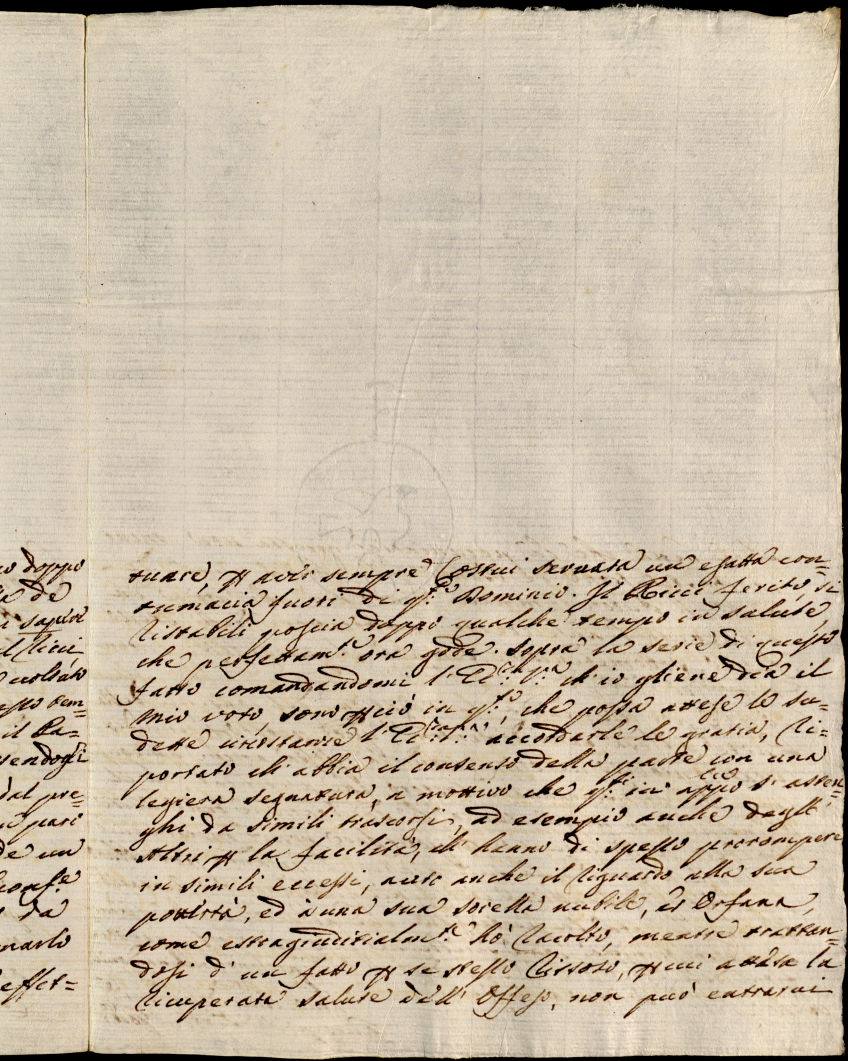 o doppo
e de
i sapire
il Ricci
ascoltato
esto tem=
il Pa=
sendogli
dal pre=
ni pari
de un
Conf.e
da
narlo
effet=
tuare, p aver sempre Costui servata un esatta con=
tumacia fuori di q.to Dominio. Il Ricci ferito, si
ristabilì poscia doppo qualche tempo in salute,
che perfettam.te ora gode. Sopra la serie di questo
fatto comandandomi l' Ecc.za V.ra ch' io gliene dia il
mio voto, sono p ciò in q.to, che possa attese le su=
dette circostanze l' Ecc.za V.ra accordarle le gratia, ri=
portato ch' abbia il consenso della parte con una
legiera segnatura, a mottivo che q.ti in app.o s' asten=
ghi da simili trascorsi, ad esempio anche degl'
Altri p la facilità, ch' hanno di spesso prorompere
in simili eccessi, avuto anche il riguardo alla sua
povertà, ed à una sua sorella nubile, et Orfana,
come estragiuditialm.te hò racolto, mentre trattan=
dosi d' un fatto p se stesso rissoso, p cui attesa la
ricuperata salute dell' Offeso, non può entrarvi